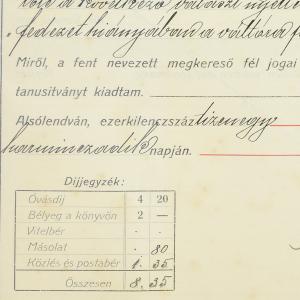 a következő választ nyert
"fedezet hiányában a váltóra f
Miről, a fent nevezett megkereső fél jogai
tanusítványt kiadtam.
Alsólendván, ezerkilencszáz tizenegy
harminczadik napján.
Díjjegyzék:
Óvásdíj 4 20
Bélyeg a könyvön 2 —
Vitelbér . .
Másolat . 80
Közlés és postabér 1. 35
Összesen 8. 35